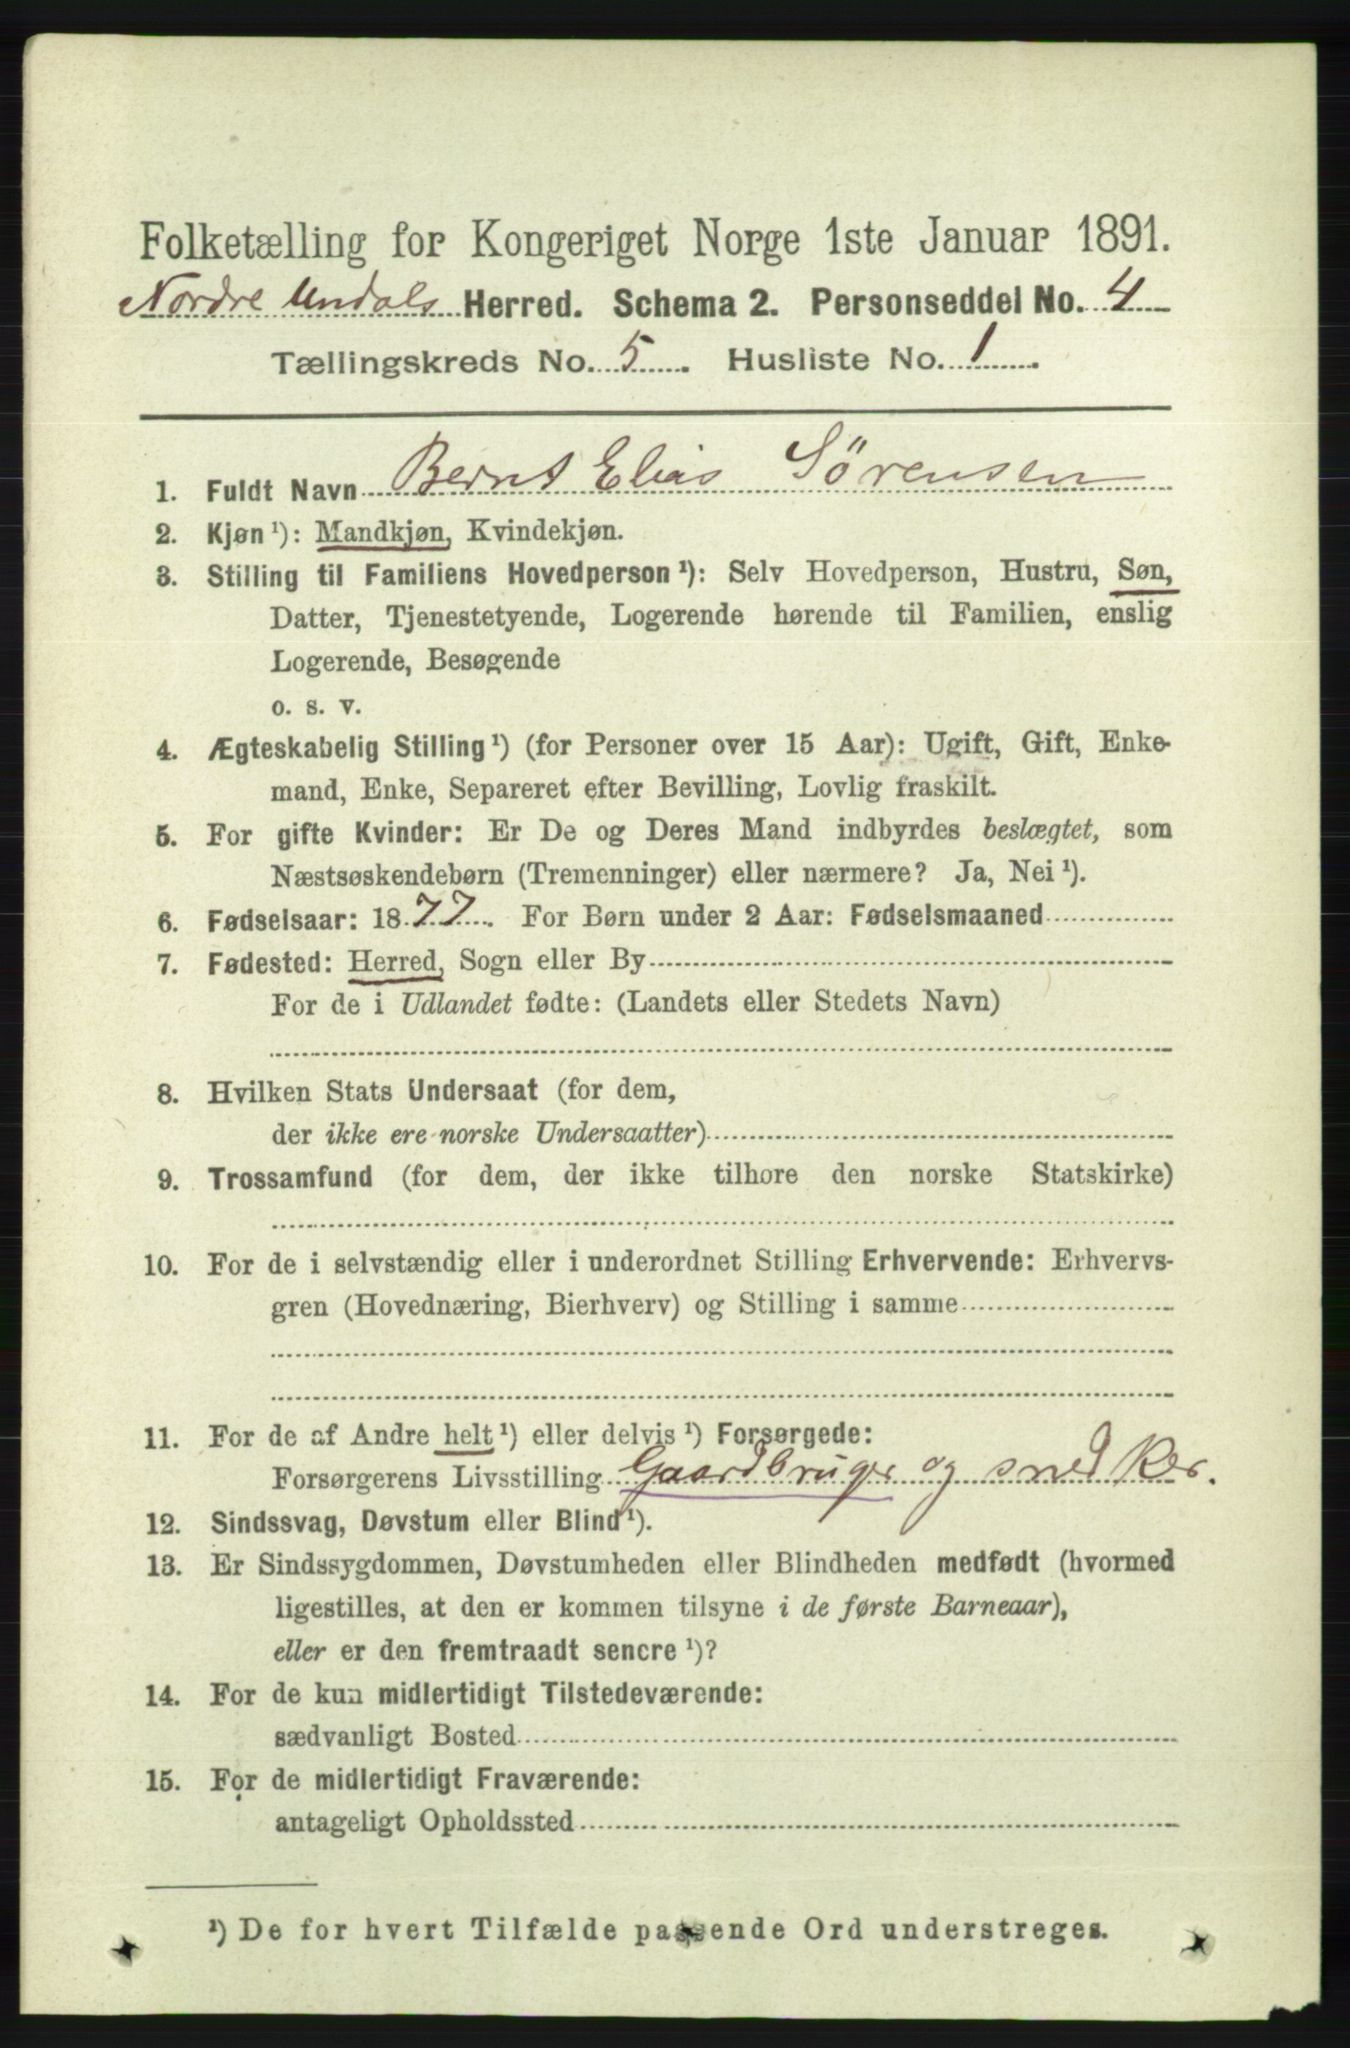 Folketælling for Kongeriget Norge 1ste Januar 1891.
Nordre Undals Herred. Schema 2. Personseddel No. 4
Tællingskreds No. 5. Husliste No. 1.
1. Fuldt Navn Bernt Elias Sörensen
2. Kjøn ¹): Mandkjøn, Kvindekjøn.
3. Stilling til Familiens Hovedperson ¹): Selv Hovedperson, Hustru, Søn,
Datter, Tjenestetyende, Logerende hørende til Familien, enslig
Logerende, Besøgende
o. s. v.
4. Ægteskabelig Stilling ¹) (for Personer over 15 Aar): Ugift, Gift, Enke-
mand, Enke, Separeret efter Bevilling, Lovlig fraskilt.
5. For gifte Kvinder: Er De og Deres Mand indbyrdes beslægtet, som
Næstsøskendebørn (Tremenninger) eller nærmere? Ja, Nei ¹).
6. Fødselsaar: 1877. For Børn under 2 Aar: Fødselsmaaned
7. Fødested: Herred, Sogn eller By
For de i Udlandet fødte: (Landets eller Stedets Navn)
8. Hvilken Stats Undersaat (for dem,
der ikke ere norske Undersaatter)
9. Trossamfund (for dem, der ikke tilhøre den norske Statskirke)
10. For de i selvstændig eller i underordnet Stilling Erhvervende: Erhvervs-
gren (Hovednæring, Bierhverv) og Stilling i samme
11. For de af Andre helt ¹) eller delvis ¹) Forsørgede:
Forsørgerens Livsstilling Gaardbruger og snedker.
12. Sindssvag, Døvstum eller Blind ¹).
13. Er Sindssygdommen, Døvstumheden eller Blindheden medfødt (hvormed
ligestilles, at den er kommen tilsyne i de første Barneaar),
eller er den fremtraadt senere ¹)?
14. For de kun midlertidigt Tilstedeværende:
sædvanligt Bosted
15. For de midlertidigt Fraværende:
antageligt Opholdssted
¹) De for hvert Tilfælde passende Ord understreges.